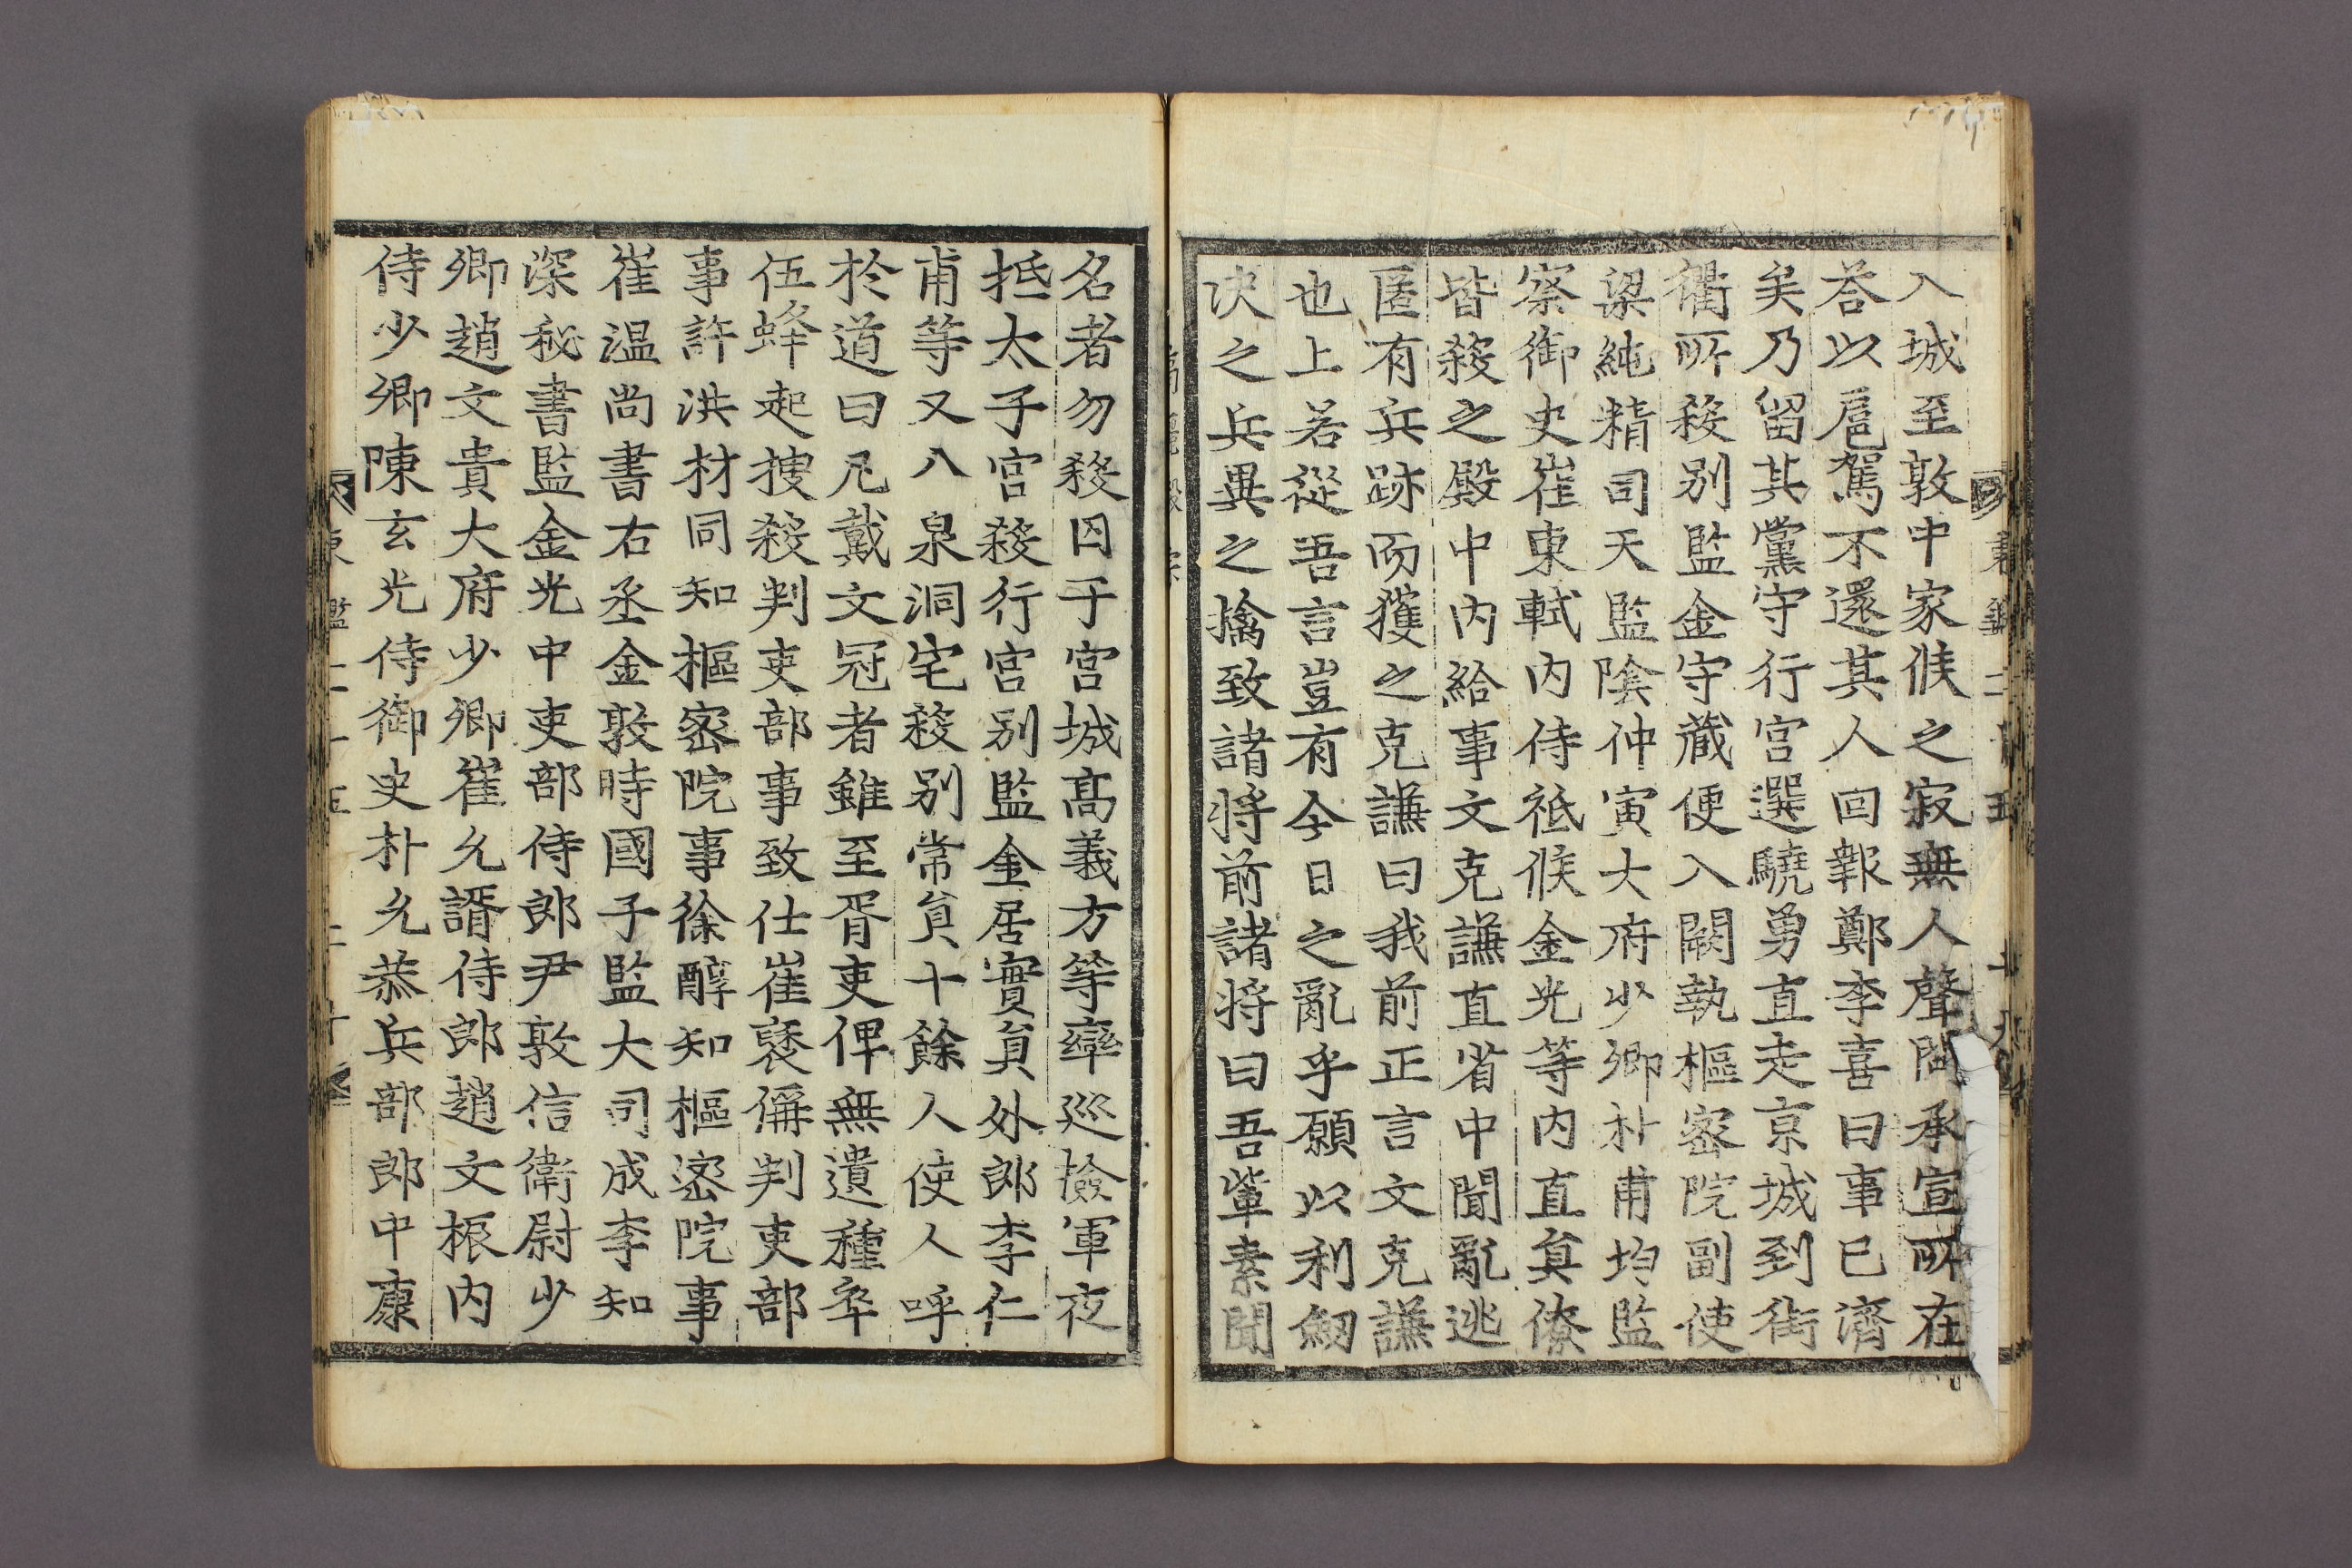 入城至敦中家候之寂無人聲問承宣所在
荅以扈駕不還其人回報鄭李喜曰事已濟
矣乃留其黨守行宮選驍勇直走京城到街
衢所殺別監金守蔵便入闕執樞密院副使
梁純精司天監陰仲寅大府少卿朴甫均監
察御史崔東軾内侍祗候金光等内直貟僚
皆殺之殿中内給事文克謙直省中聞亂逃
匿有兵跡而獲之克謙曰我前正言文克謙
也上若從吾言豈有今日之亂乎願以利劒
决之兵異之擒致諸將前諸將曰吾軰素聞
名者勿殺囚于宮城高義方等率巡撿軍夜
抵太子宮殺行宮別監金居實貟外郎李仁
甫等又入泉洞宅殺別常貟十餘人使人呼
於道曰凡戴文冠者雖至胥吏俾無遺種卒
伍蜂起搜殺判吏部事致仕崔褎偁判吏部
事許洪材同知樞密院事徐醇知樞密院事
崔温尚書右丞金敦時國子監大司成李知
深秘書監金光中吏部侍郎尹敦信衛尉少
卿趙文貴大府少卿崔允諝侍郎趙文振内
侍少卿陳玄光侍御史朴允恭兵部郎中康